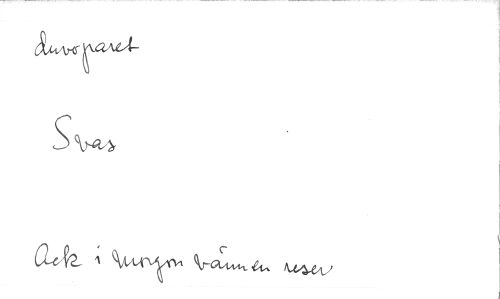 duvoparet
Svas
Ack i morgon vännen reser